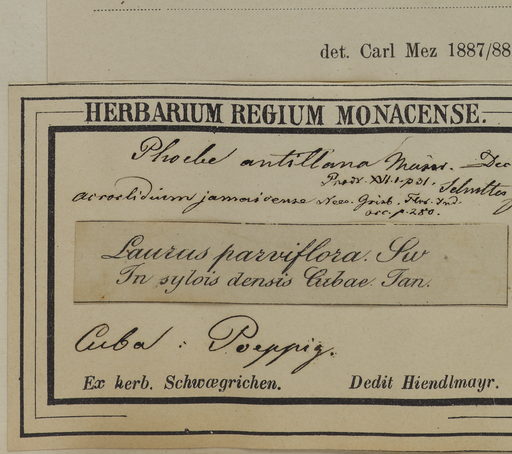 det. Carl Mez 1887/88
HERBARIUM REGIUM MONACENSE.
Phoebe antillana Meisn. Dec
Prodr. XV.1.p.31.
acrodidium jamaicense Nees. Griseb. Flor. Ind.
occ. p. 280.
Laurus parviflora. Sw
In sylvis densis Cubae. Jan.
Cuba : Poeppig.
Ex herb. Schwægrichen. Dedit Hiendlmayr.